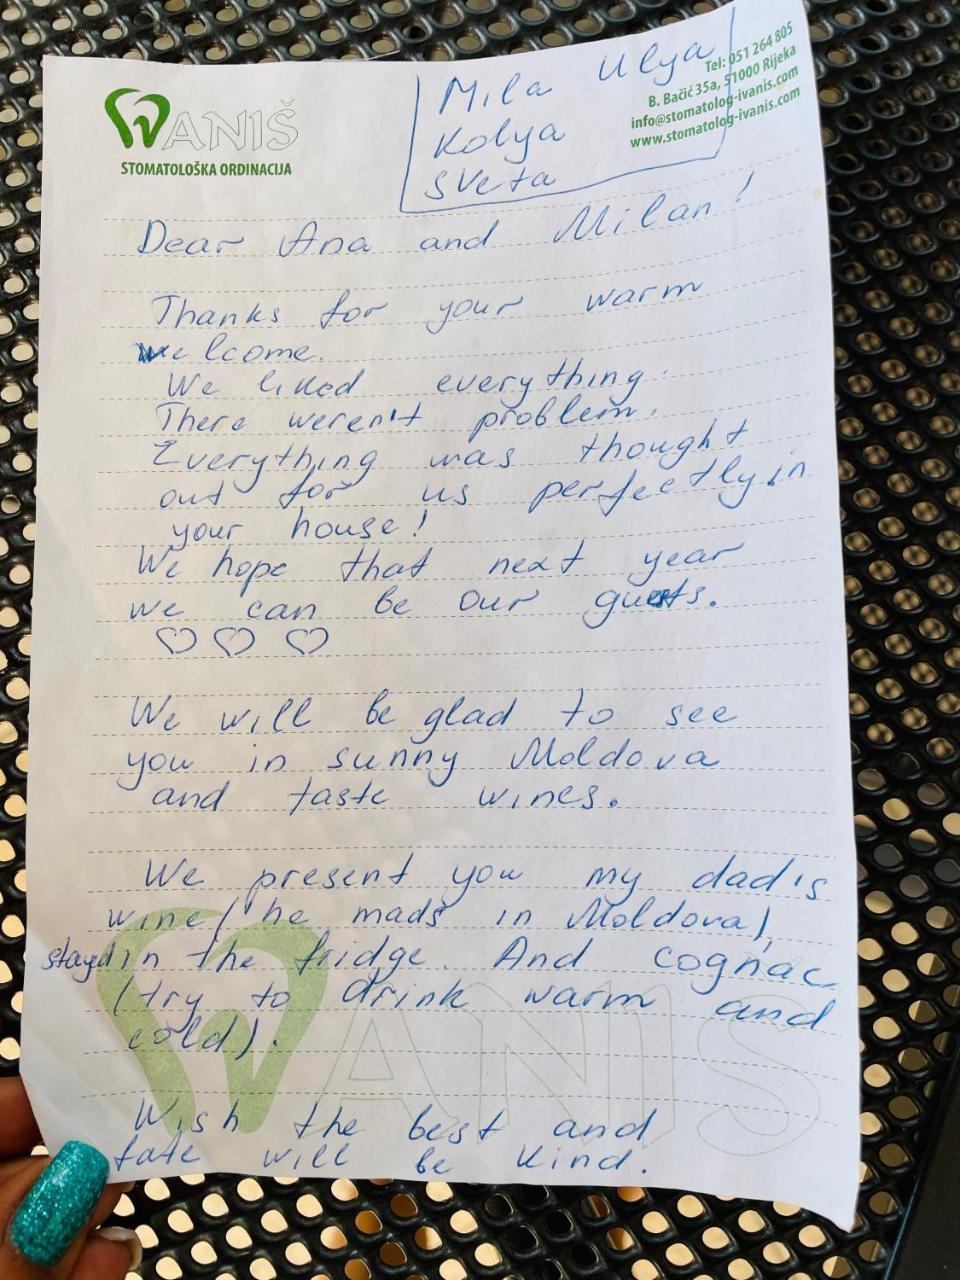 IVANIŠ
STOMATOLOŠKA ORDINACIJA
Tel: 051 264 805
B. Bačić 35a, 51000 Rijeka
info@stomatolog-ivanis.com
www.stomatolog-ivanis.com
Mila Ulya
Kolya
Sveta
Dear Ana and Milan!
Thanks for your warm
welcome.
We liked everything.
There weren't problem.
Everything was thought
out for us perfectly in
your house!
We hope that next year
we can be our guests.
♡ ♡ ♡
We will be glad to see
you in sunny Moldova
and taste wines.
We present you my dad's
wine (he mads in Moldova),
stayd in the fridge. And cognac
(try to drink warm and
cold).
Wish the best and
fate will be kind.
IVANIŠ